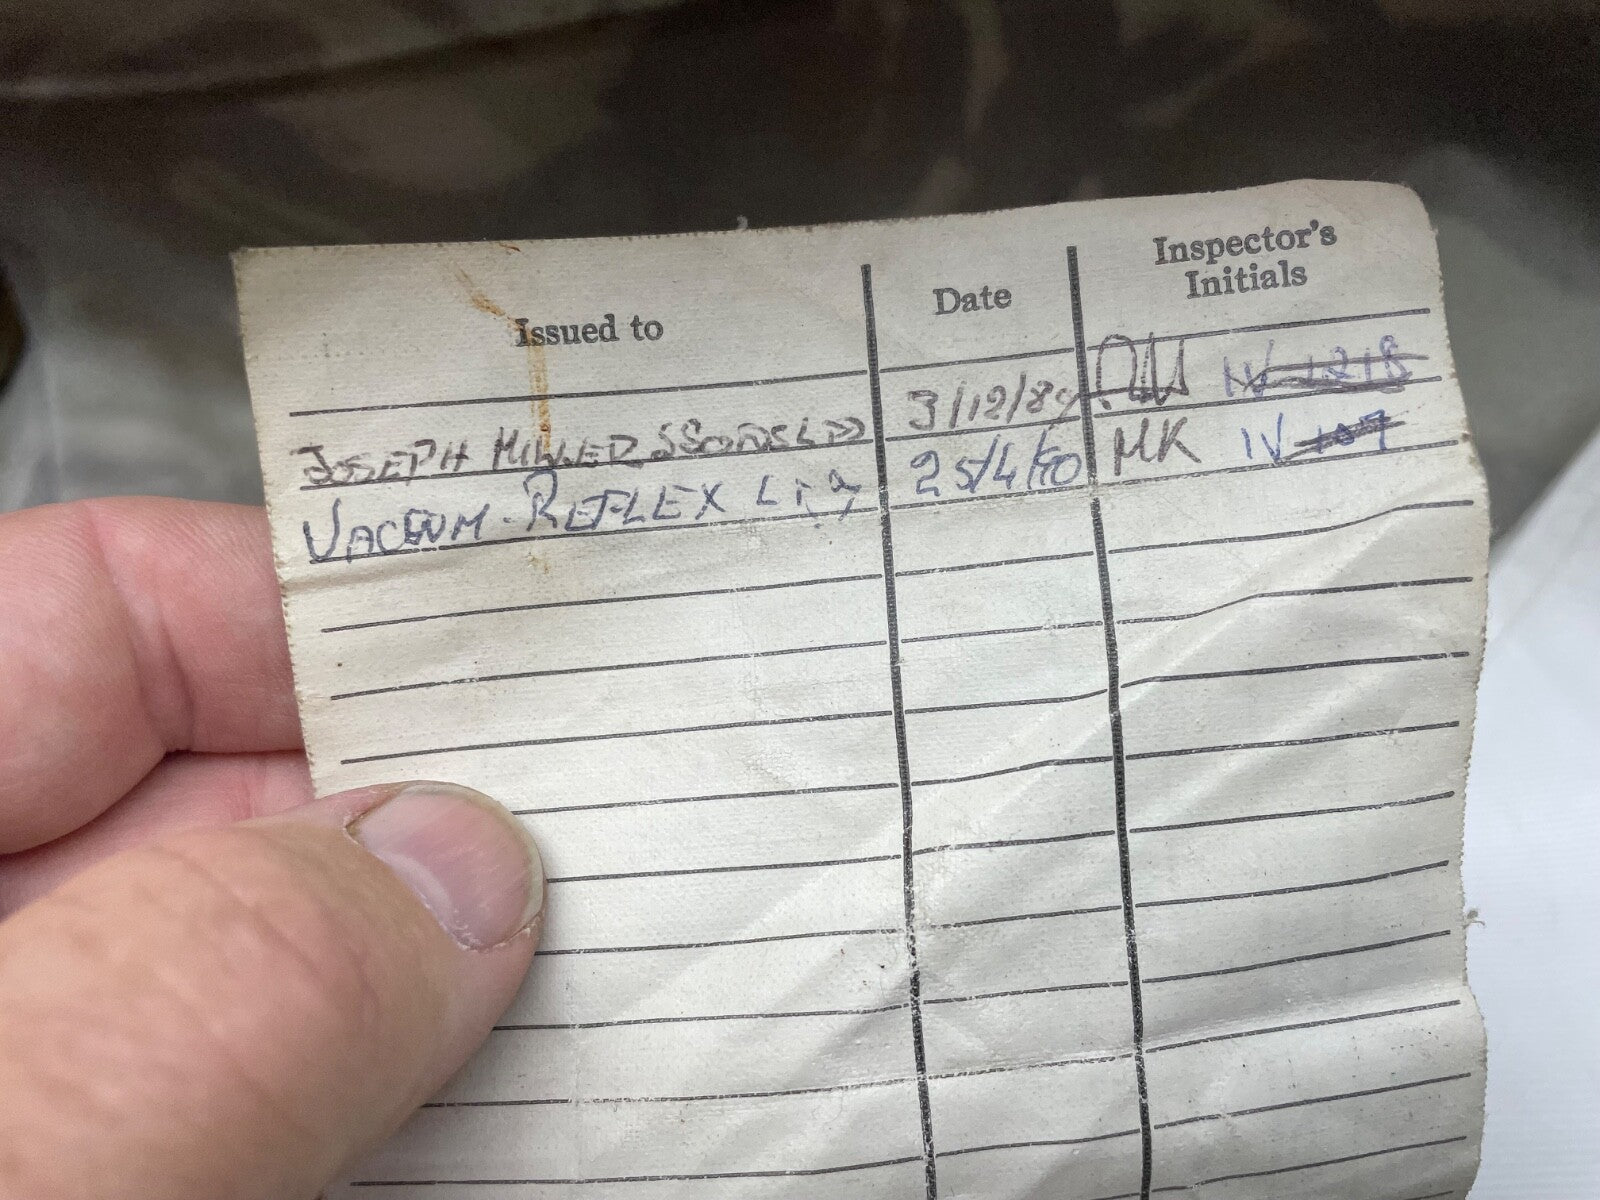 Issued to Date Inspector's Initials
JOSEPH MILLER & SONS LTD 3/12/89 IV 1218
VACUUM-REFLEX LTD 25/4/90 MK IV 107